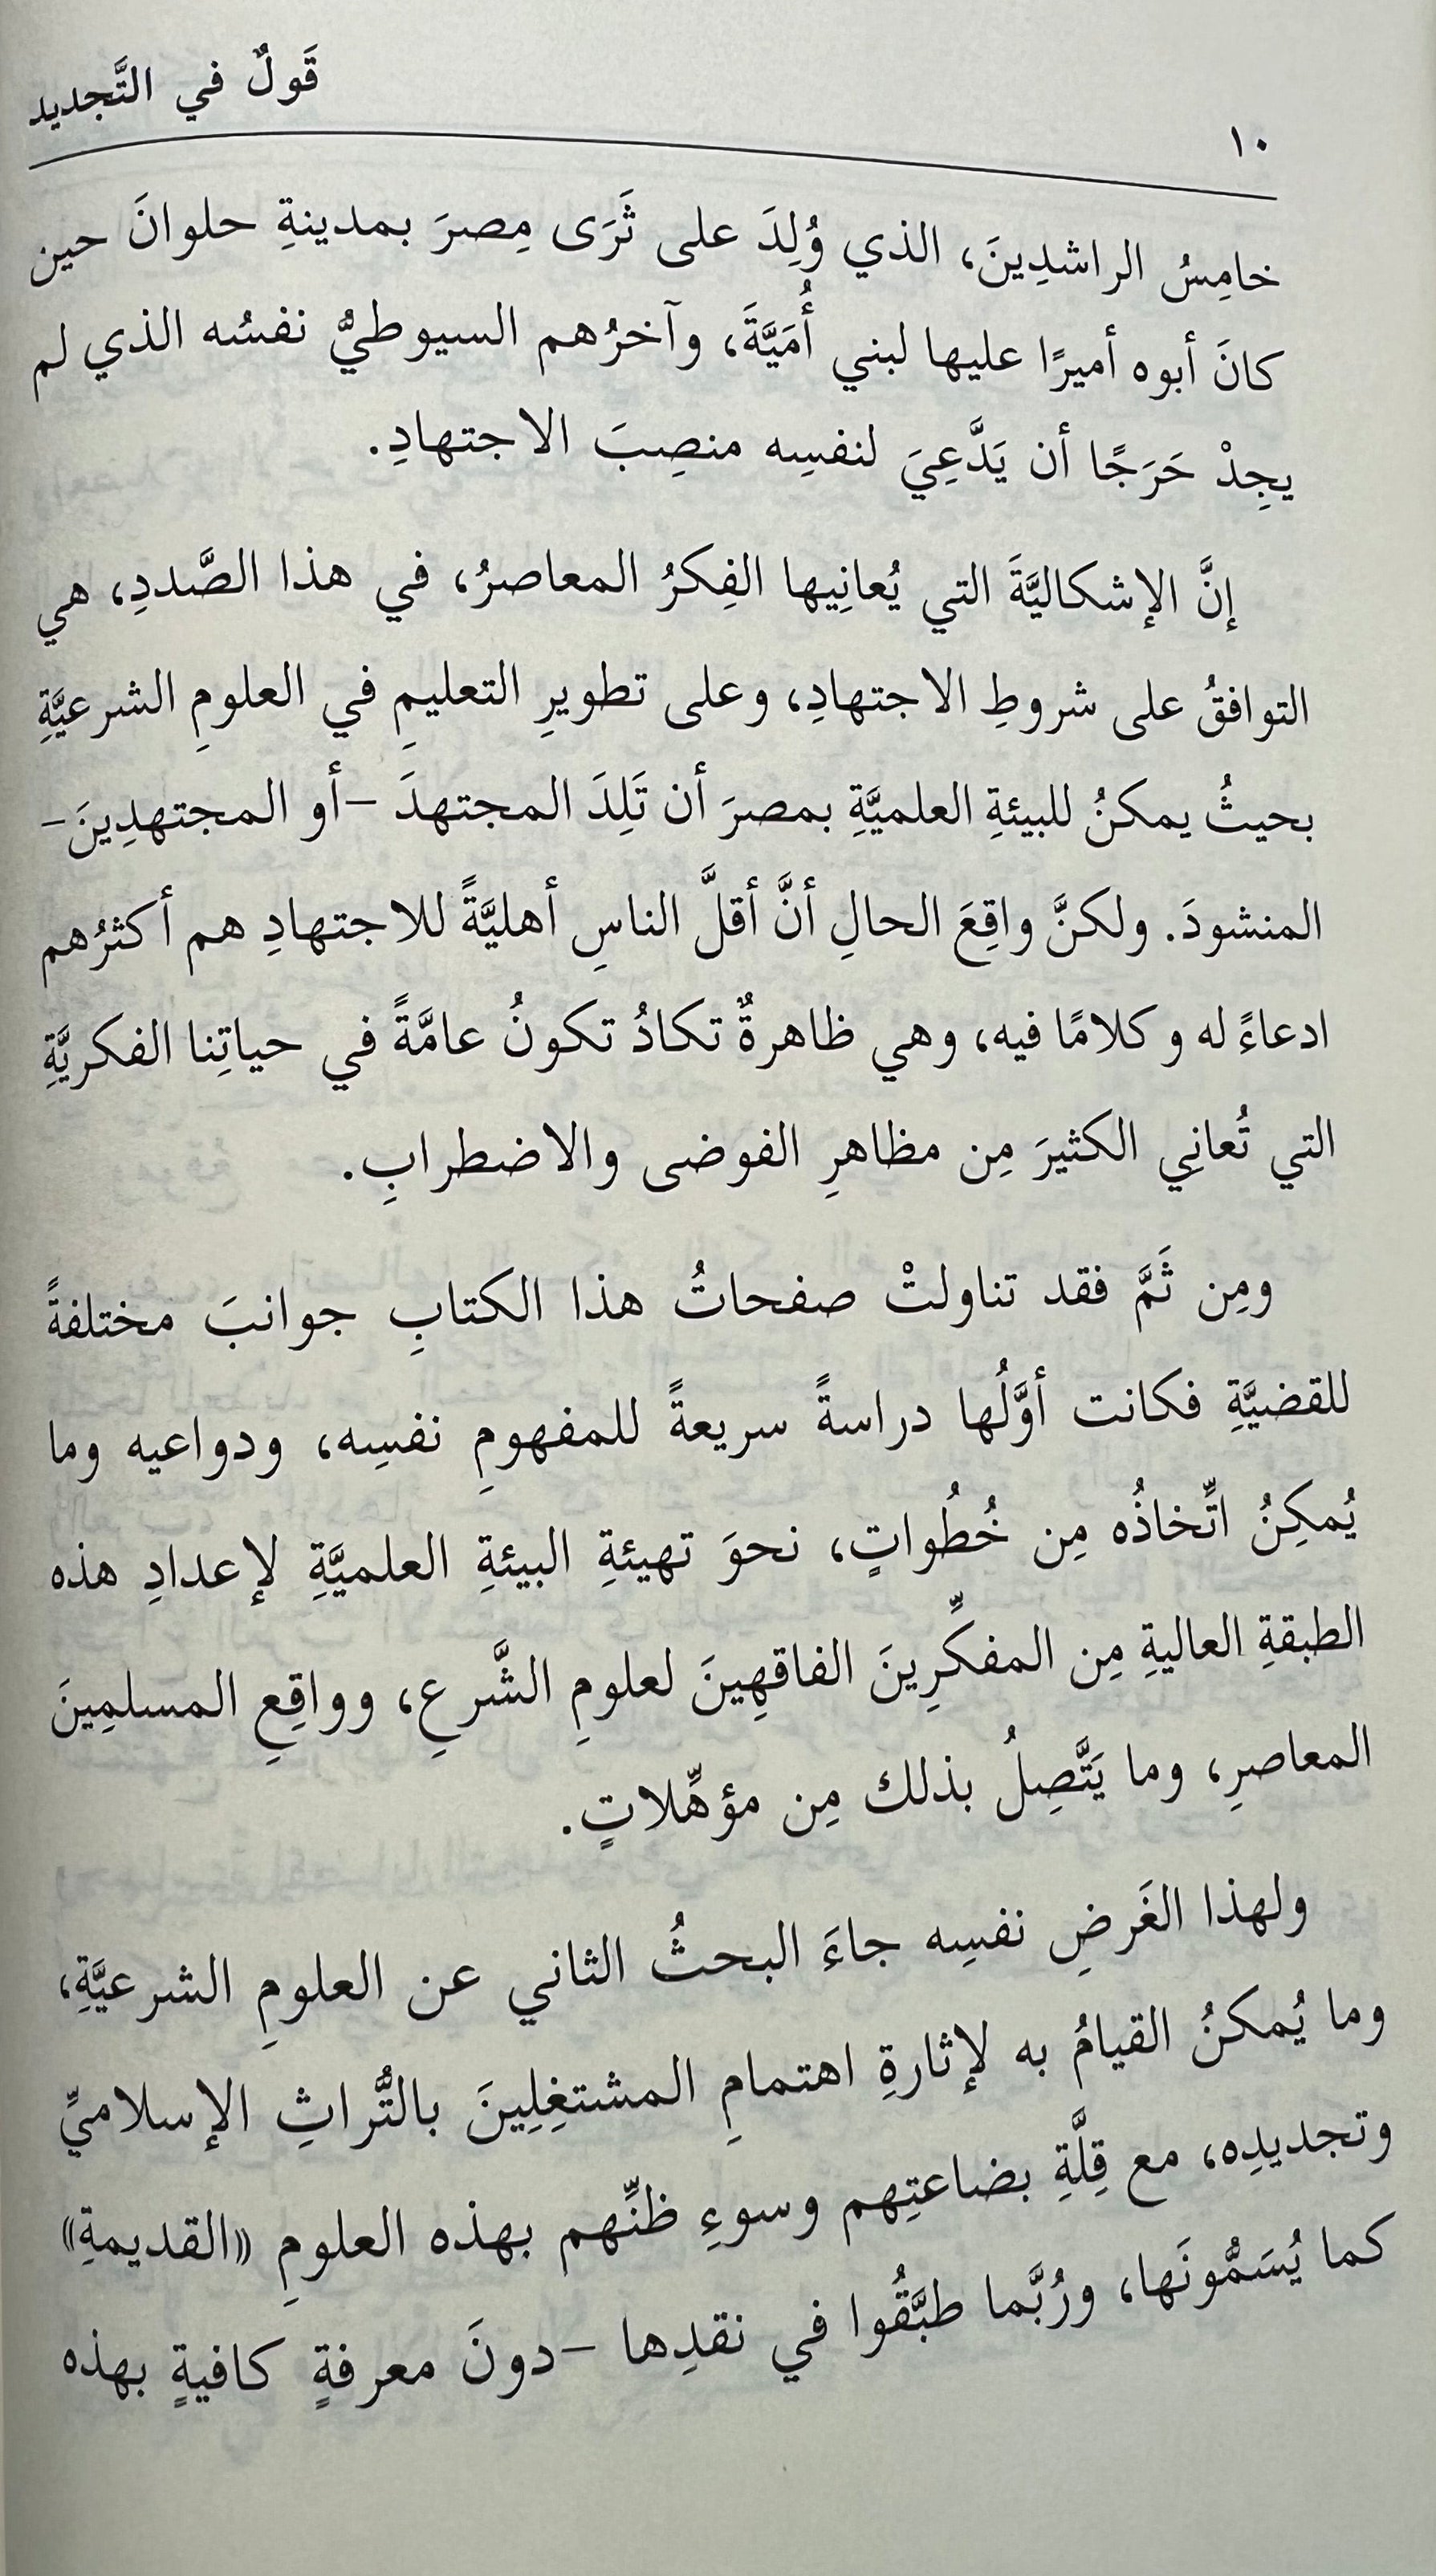 قَولٌ في التَّجديد
١٠
خامِسُ الراشدِينَ، الذي وُلِدَ على ثَرَى مِصرَ بمدينةِ حلوانَ حين
كانَ أبوه أميرًا عليها لبني أُمَيَّةَ، وآخرُهم السيوطيُّ نفسُه الذي لم
يجِدْ حَرَجًا أن يَدَّعِيَ لنفسِه منصِبَ الاجتهادِ.
إنَّ الإشكاليَّةَ التي يُعانِيها الفِكرُ المعاصرُ، في هذا الصَّددِ، هي
التوافقُ على شروطِ الاجتهادِ، وعلى تطويرِ التعليمِ في العلومِ الشرعيَّةِ
بحيثُ يمكنُ للبيئةِ العلميَّةِ بمصرَ أن تَلِدَ المجتهدَ –أو المجتهدِينَ–
المنشودَ. ولكنَّ واقِعَ الحالِ أنَّ أقلَّ الناسِ أهليَّةً للاجتهادِ هم أكثرُهم
ادعاءً له وكلامًا فيه، وهي ظاهرةٌ تكادُ تكونُ عامَّةً في حياتِنا الفكريَّةِ
التي تُعانِي الكثيرَ مِن مظاهرِ الفوضى والاضطرابِ.
ومِن ثَمَّ فقد تناولتْ صفحاتُ هذا الكتابِ جوانبَ مختلفةً
للقضيَّةِ فكانت أوَّلُها دراسةً سريعةً للمفهومِ نفسِه، ودواعيه وما
يُمكِنُ اتِّخاذُه مِن خُطُواتٍ، نحوَ تهيئةِ البيئةِ العلميَّةِ لإعدادِ هذه
الطبقةِ العاليةِ مِن المفكِّرِينَ الفاقهِينَ لعلومِ الشَّرعِ، وواقِعِ المسلمِينَ
المعاصرِ، وما يَتَّصِلُ بذلك مِن مؤهِّلاتٍ.
ولهذا الغَرضِ نفسِه جاءَ البحثُ الثاني عن العلومِ الشرعيَّةِ،
وما يُمكنُ القيامُ به لإثارةِ اهتمامِ المشتغِلِينَ بالتُّراثِ الإسلاميِّ
وتجديدِه، مع قِلَّةِ بضاعتِهم وسوءِ ظنِّهم بهذه العلومِ «القديمةِ»
كما يُسَمُّونَها، ورُبَّما طبَّقُوا في نقدِها –دونَ معرفةٍ كافيةٍ بهذه